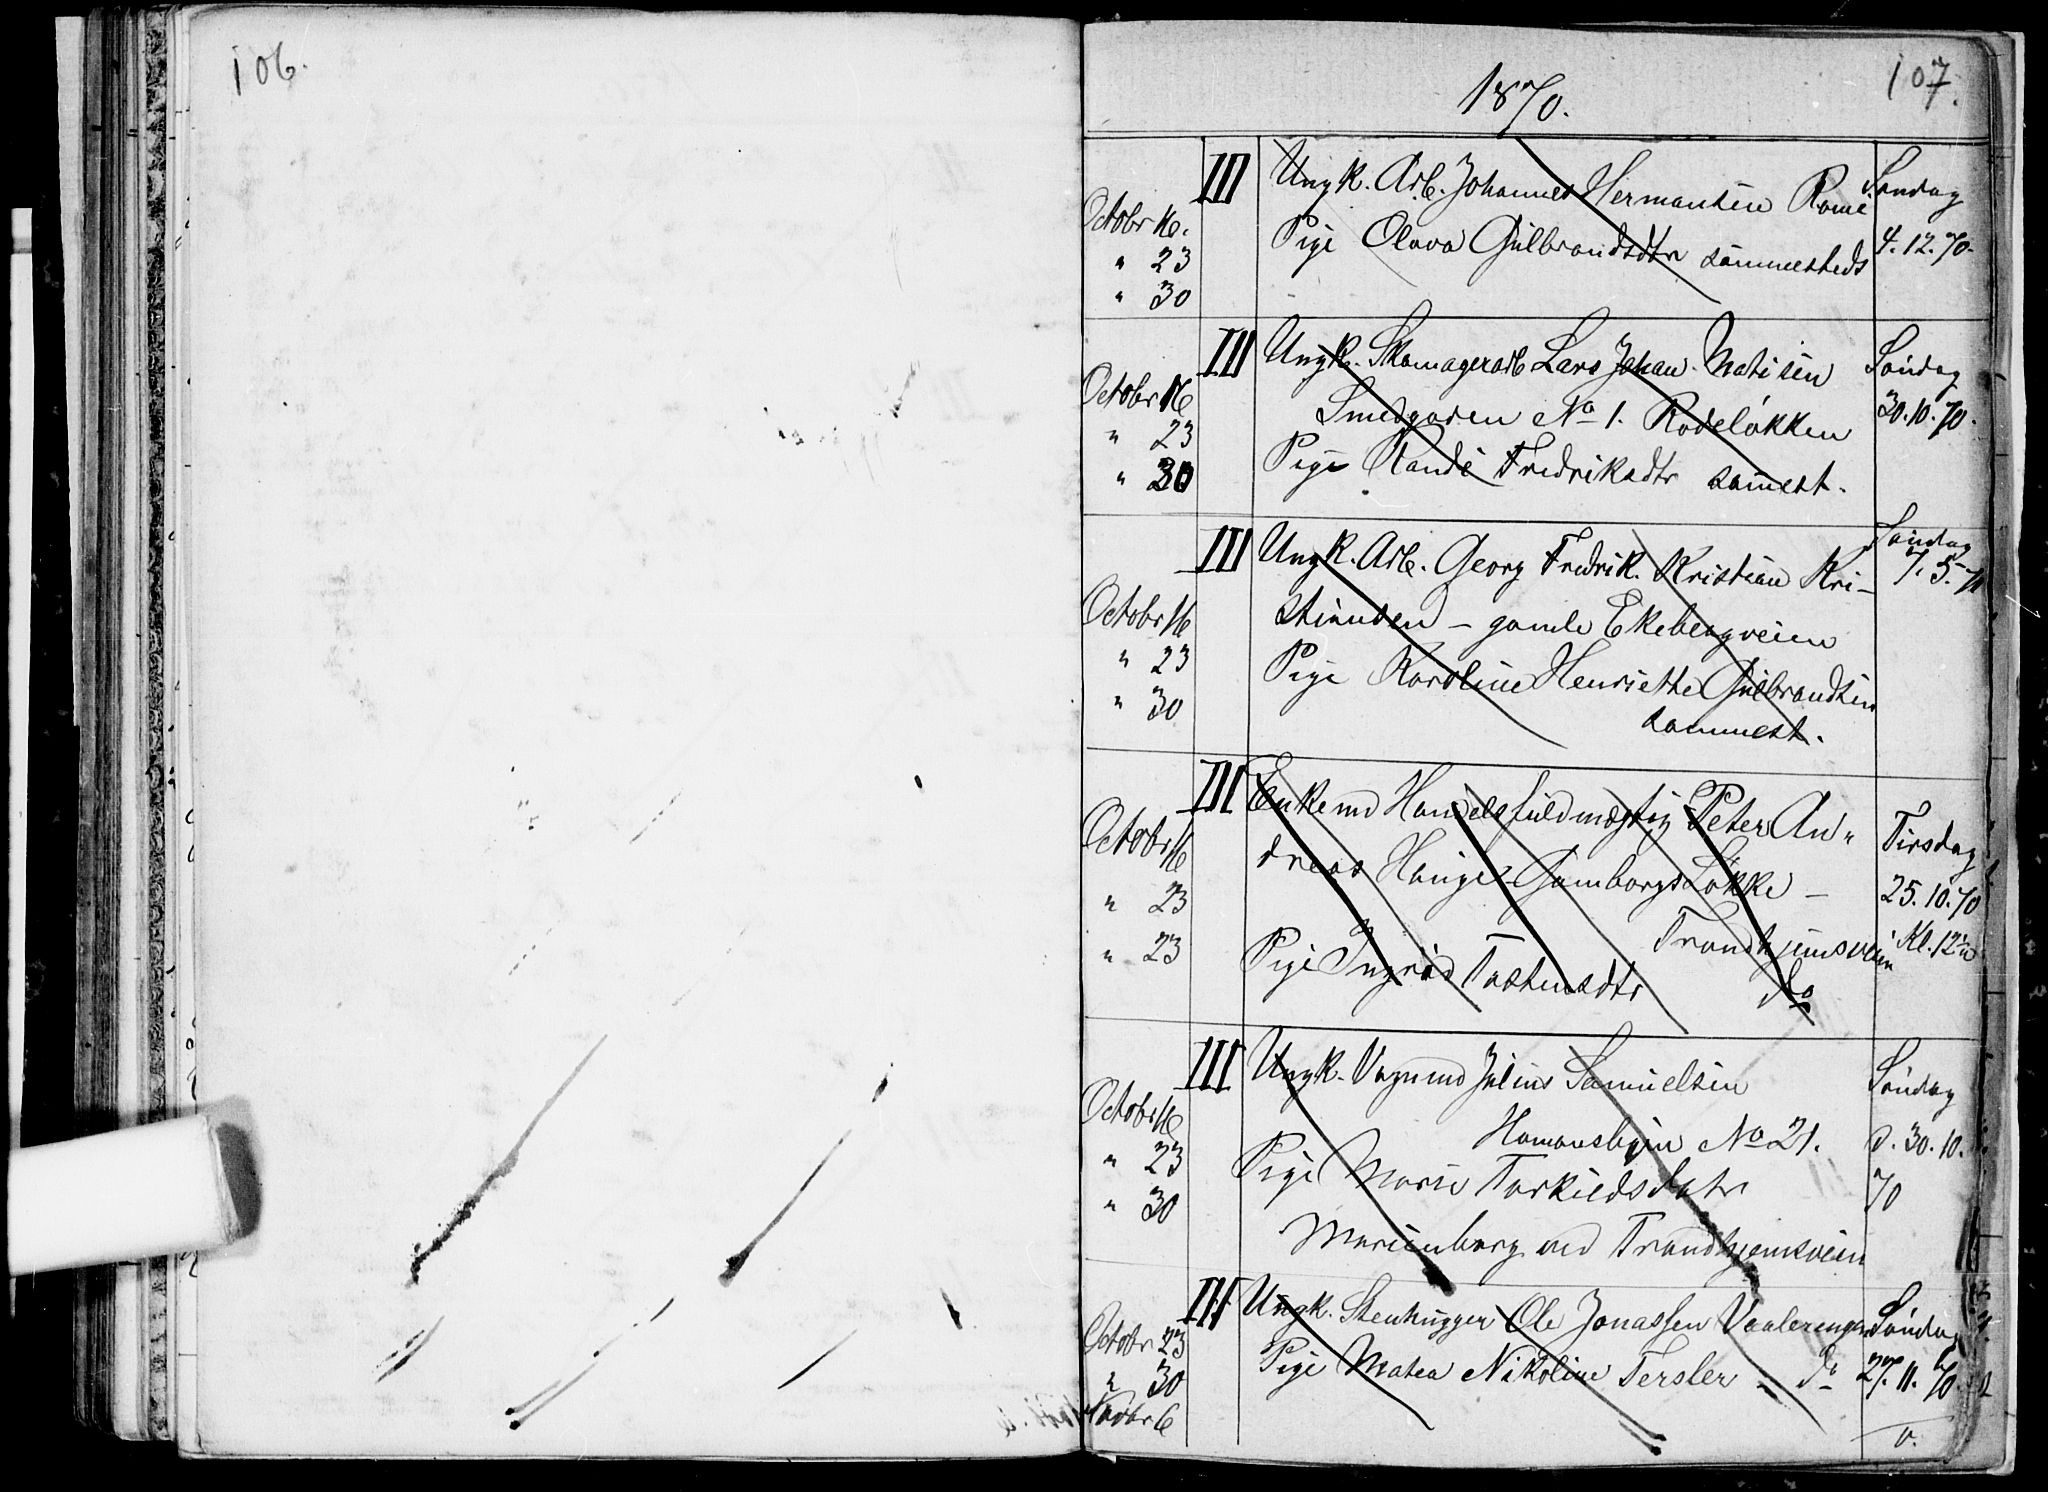 106.
107.
1870.
III Ungk. Arb. Johannes Hermansen Søndag
Octobr 16. Pige Olava Gulbrandsdtr sammesteds 4.12.70.
" 23
" 30
III Ungk. Skomagerarb Lars Johan Matisen Søndag
Octobr 16 Smedgaden No 1. Rodeløkken 30.10.70.
" 23
" 30 Pige Randi Fredriksdtr sammest.
III Ungk. Arb. Georg Fredrik Kristian Kri- Søndag
Octobr 16 stiansen - gamle Ekebergveien 7.5.71
" 23 Pige Karoline Henriette Gulbrandsen
" 30 sammest.
III Enkemd Handelsfuldmægtig Peter An- Tirsdag
Octobr 16 dreas Gamborgs Løkke - 25.10.70
" 23 Trondhjemsveien Kl. 12
" 23 Pige Ingrid Tostensdtr do
III Ungk. Vognmd Julius Samuelsen Søndag
Octobr 16 Homansbyen No 21. d. 30.10.
" 23 Pige Marie Torkildsdatr 70
" 30 Marienborg ved Trondhjemsveien
III Ungk. Stenhugger Ole Jonassen Vaalerengen Søndag
Octobr 23 Pige Matea Nikoline Fersler do 27.11.70.
" 30
Novbr 6
v.